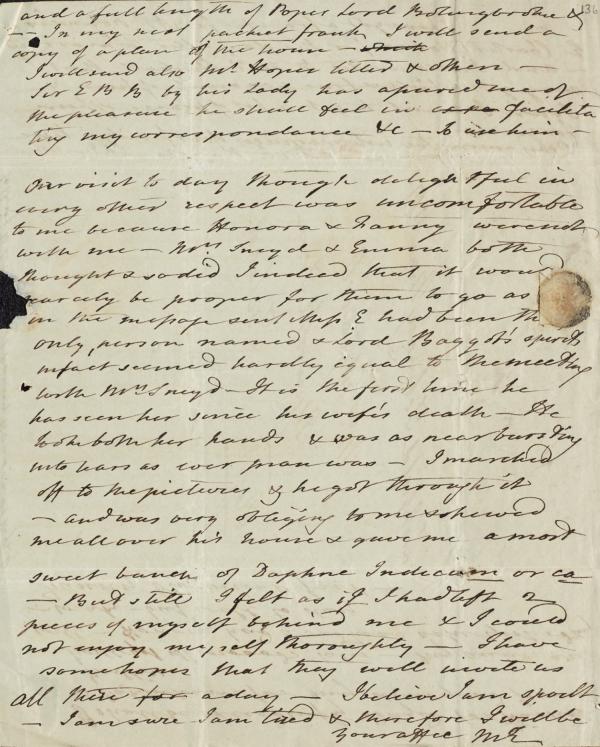 and a full length of Popes Lord Bolingbroke &
136
– In my next packet frank I will send a
copy of a plan of the house –
I will send also Mr Hopes titled & others –
Sir E B B by his Lady has assured me of
the pleasure he shall feel in facilita
ting my correspondance &c –
Our visit to day though delightful in
every other respect was uncomfortable
to me because Honora & Fanny were not
with me – Mrs Sneyd & Emma both
thought & so did I indeed that it would
scarcely be proper for them to go as
in the message sent Miss E had been the
only person named & Lord Baggot's spirits
in fact seemed hardly equal to the meeting
with Mrs Sneyd – It is the first time he
has seen her since his wife's death – He
took both her hands & was as near bursting
into tears as ever man was – I marched
off to the pictures & he got through it
– and was very obliging to me & shewed
me all over his house & gave me a most
sweet bunch of Daphne Indicum or ca
– But still I felt as if I had left 2
pieces of myself behind me & I could
not enjoy myself thoroughly – I have
some hopes that they will invite us
all there for a day – I believe I am spoilt
– I am sure I am tired & therefore I will be
Your affec ME